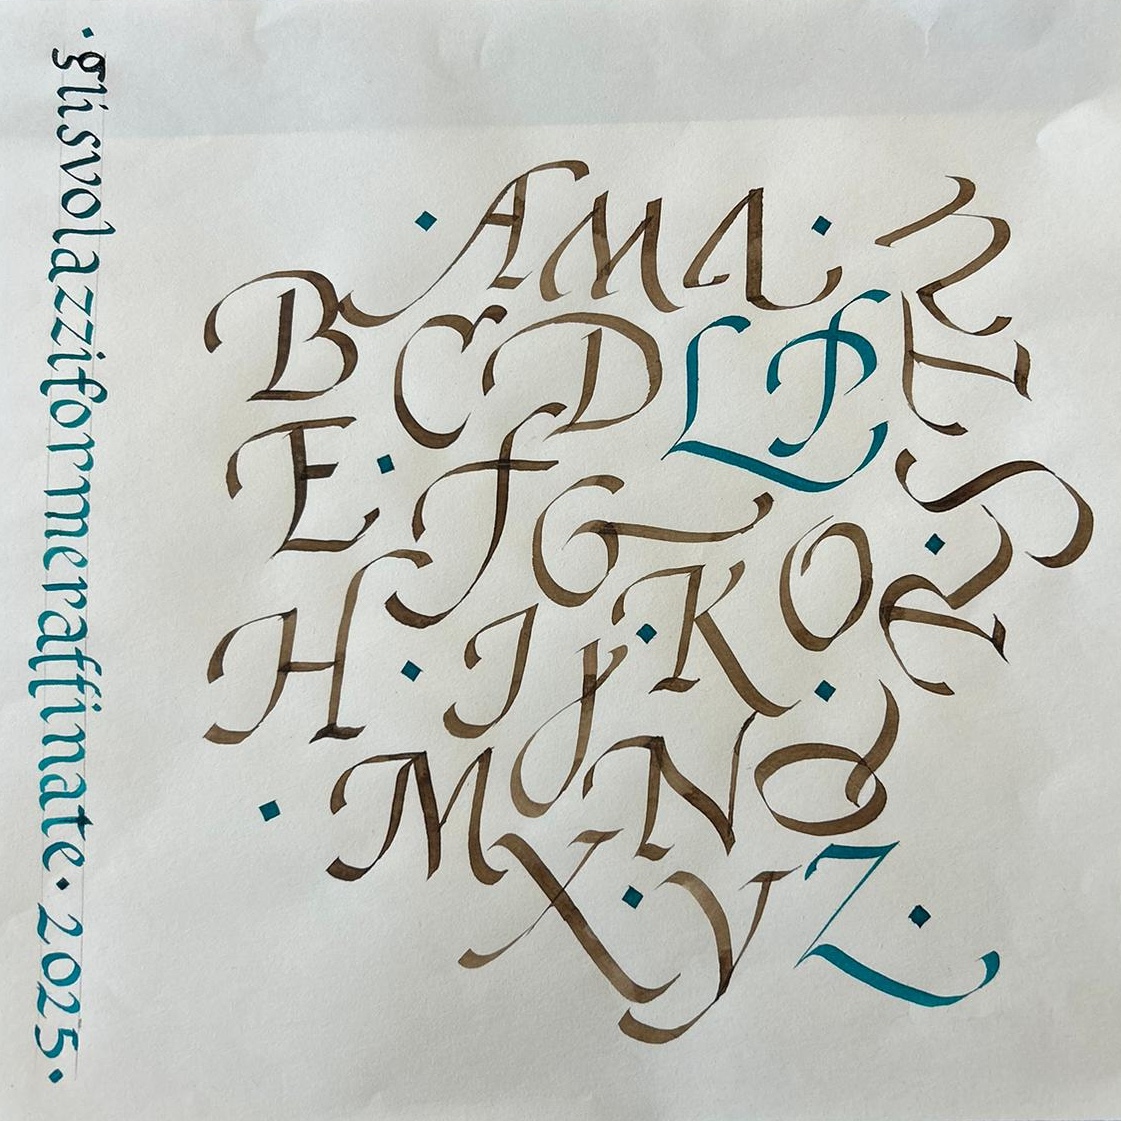 ·glisvolazziformeraffinate·2025·
·AMA·
BCDLP
E·FG
H·IJ·KO·
·MNQ
X·YZ·
R·ST